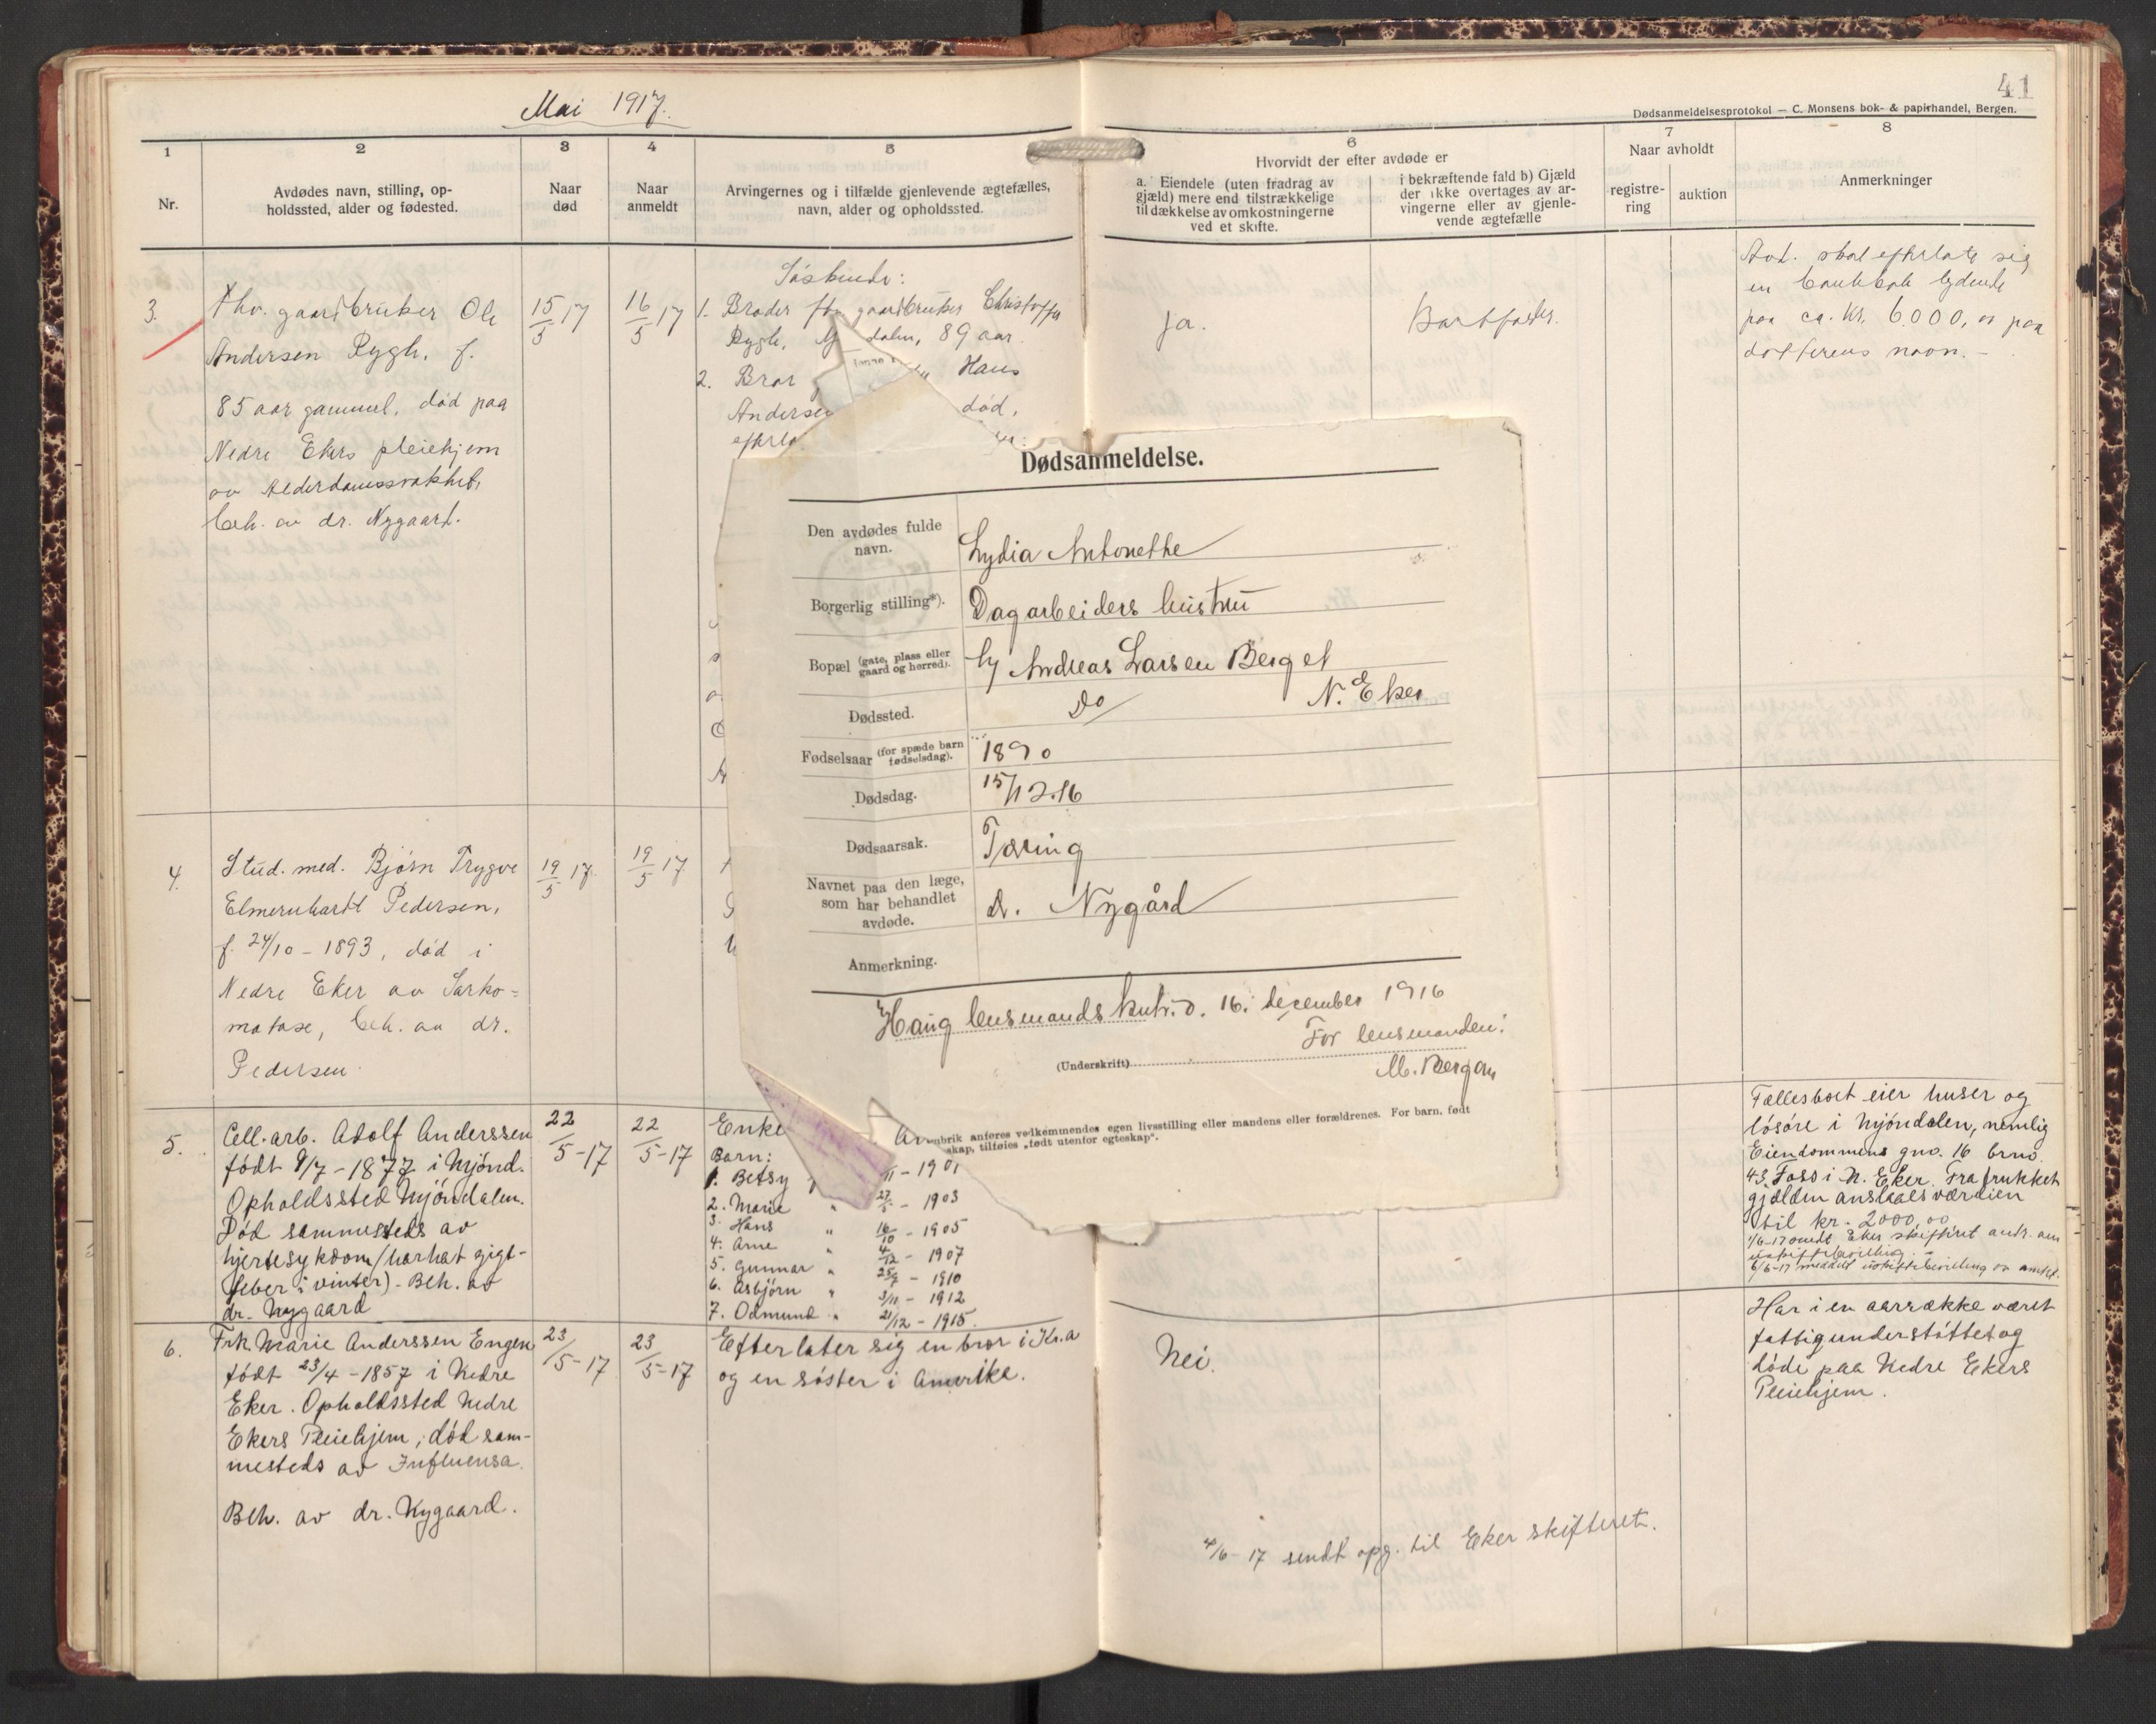 Mai 1917.
41
Dødsanmeldelsesprotokol — C. Monsens bok- & papirhandel, Bergen.
1
Nr.
2
Avdødes navn, stilling, op-
holdssted, alder og fødested.
3
Naar
død
4
Naar
anmeldt
5
Arvingernes og i tilfælde gjenlevende ægtefælles,
navn, alder og opholdssted.
6
Hvorvidt der efter avdøde er
a. Eiendele (uten fradrag av
gjæld) mere end tilstrækkelige
til dækkelse av omkostningerne
ved et skifte.
i bekræftende fald b) Gjæld
der ikke overtages av ar-
vingerne eller av gjenle-
vende ægtefælle
7
Naar avholdt
registre-
ring
auktion
8
Anmerkninger
3.
Fhv. gaardbruker Ole
Andersen Rygh, f.
85 aar gammel, død paa
Nedre Ekers pleiehjem
av Alderdomssvakhet,
beh. av dr. Nygaard.
15/5 17
16/5 17
Søskende:
1. Broder fhv. gaardbruker Christoffer
Rygh, dalen, 89 aar.
2. Bror Hans
Andersen død,
ja.
Avd. skal efterlate sig
en bankbok lydende
paa ca. Kr. 6.000, paa
datterens navn. -
Dødsanmeldelse.
Den avdødes fulde
navn.
Lydia Antonethe
Borgerlig stilling*).
Dagarbeiders hustru
Bopæl (gate, plass eller
gaard og herred).
Andreas Larsen Berget
Dødssted.
Do N. Eker
Fødselsaar (for spæde barn
fødselsdag).
1890
Dødsdag.
15/12.16
Dødsaarsak.
Tæring
Navnet paa den læge,
som har behandlet
avdøde.
dr. Nygård
Anmerkning.
Haug lensmandskntr. d. 16. december 1916
For lensmanden:
(Underskrift)
M. Bergan
brik anføres vedkommendes egen livsstilling eller mandens eller forældrenes. For barn, født
skap, tilføies „født utenfor egteskap“.
4.
Stud. med. Bjørn Trygve
Elmernhardt Pedersen,
f. 24/10 - 1893, død i
Nedre Eker av Sarko=
matose, beh. av dr.
Pedersen
19/5 17.
19/5 17
5.
Cell. arb. Adolf Anderssen
født 9/7 - 1877 i Mjønd.
Opholdssted Mjøndalen.
Død sammesteds av
hjertesykdom (har hat gigt-
feber i vinter) - Beh. av
dr. Nygaard
22/5-17
22/5-17
Enke
Barn:
1. Betsy /11 - 1901
2. Marie " 27/5 - 1903
3. Hans " 16/10 - 1905
4. Arne " 4/12 - 1907
5. Gunnar " 25/7 - 1910
6. Asbjörn " 3/11 - 1912
7. Odmund " 21/12 - 1915.
Fællesboet eier huser og
løsøre i Mjøndalen, nemlig
Eiendommens gno. 16 brno.
43 Foss i N. Eker. Frafrukket
gjælden anslaaes værdien
til kr. 2000,00
1/6-17 sendt Eker skifteret andr. om
uskiftebevilling. -
6/6-17 meddelt uskiftebevilling av amtet.
6.
Frk. Marie Anderssen Engen
født 23/4 - 1857 i Nedre
Eker. Opholdssted Nedre
Ekers Pleiehjem, død sam-
mesteds av Influensa.
Beh. av dr. Nygaard.
23/5-17
23/5-17
Efterlater sig en bror i Kr.a
og en søster i Amerika.
Nei.
Har i en aarrække været
fattigunderstøttet og
døde paa Nedre Ekers
Pleiehjem.
4/6-17 sendt opg. til Eker skifteret.